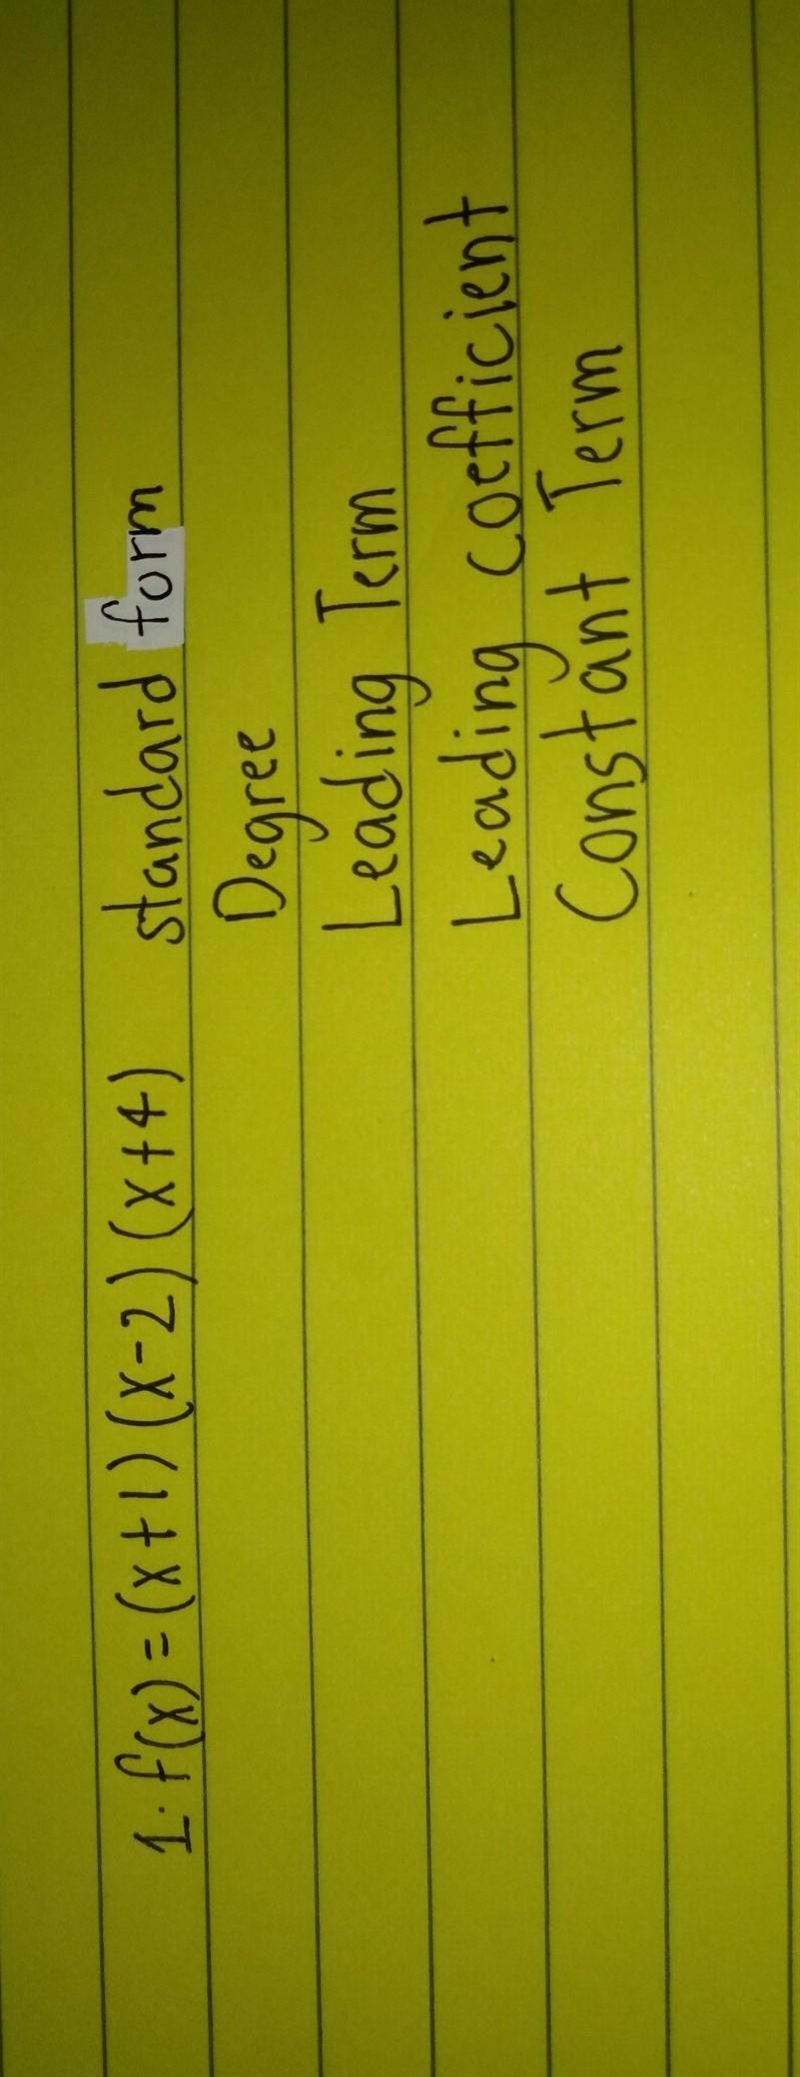 1. f(x) = (x+1) (x-2) (x+4) standard form
Degree
Leading Term
Leading coefficient
Constant Term